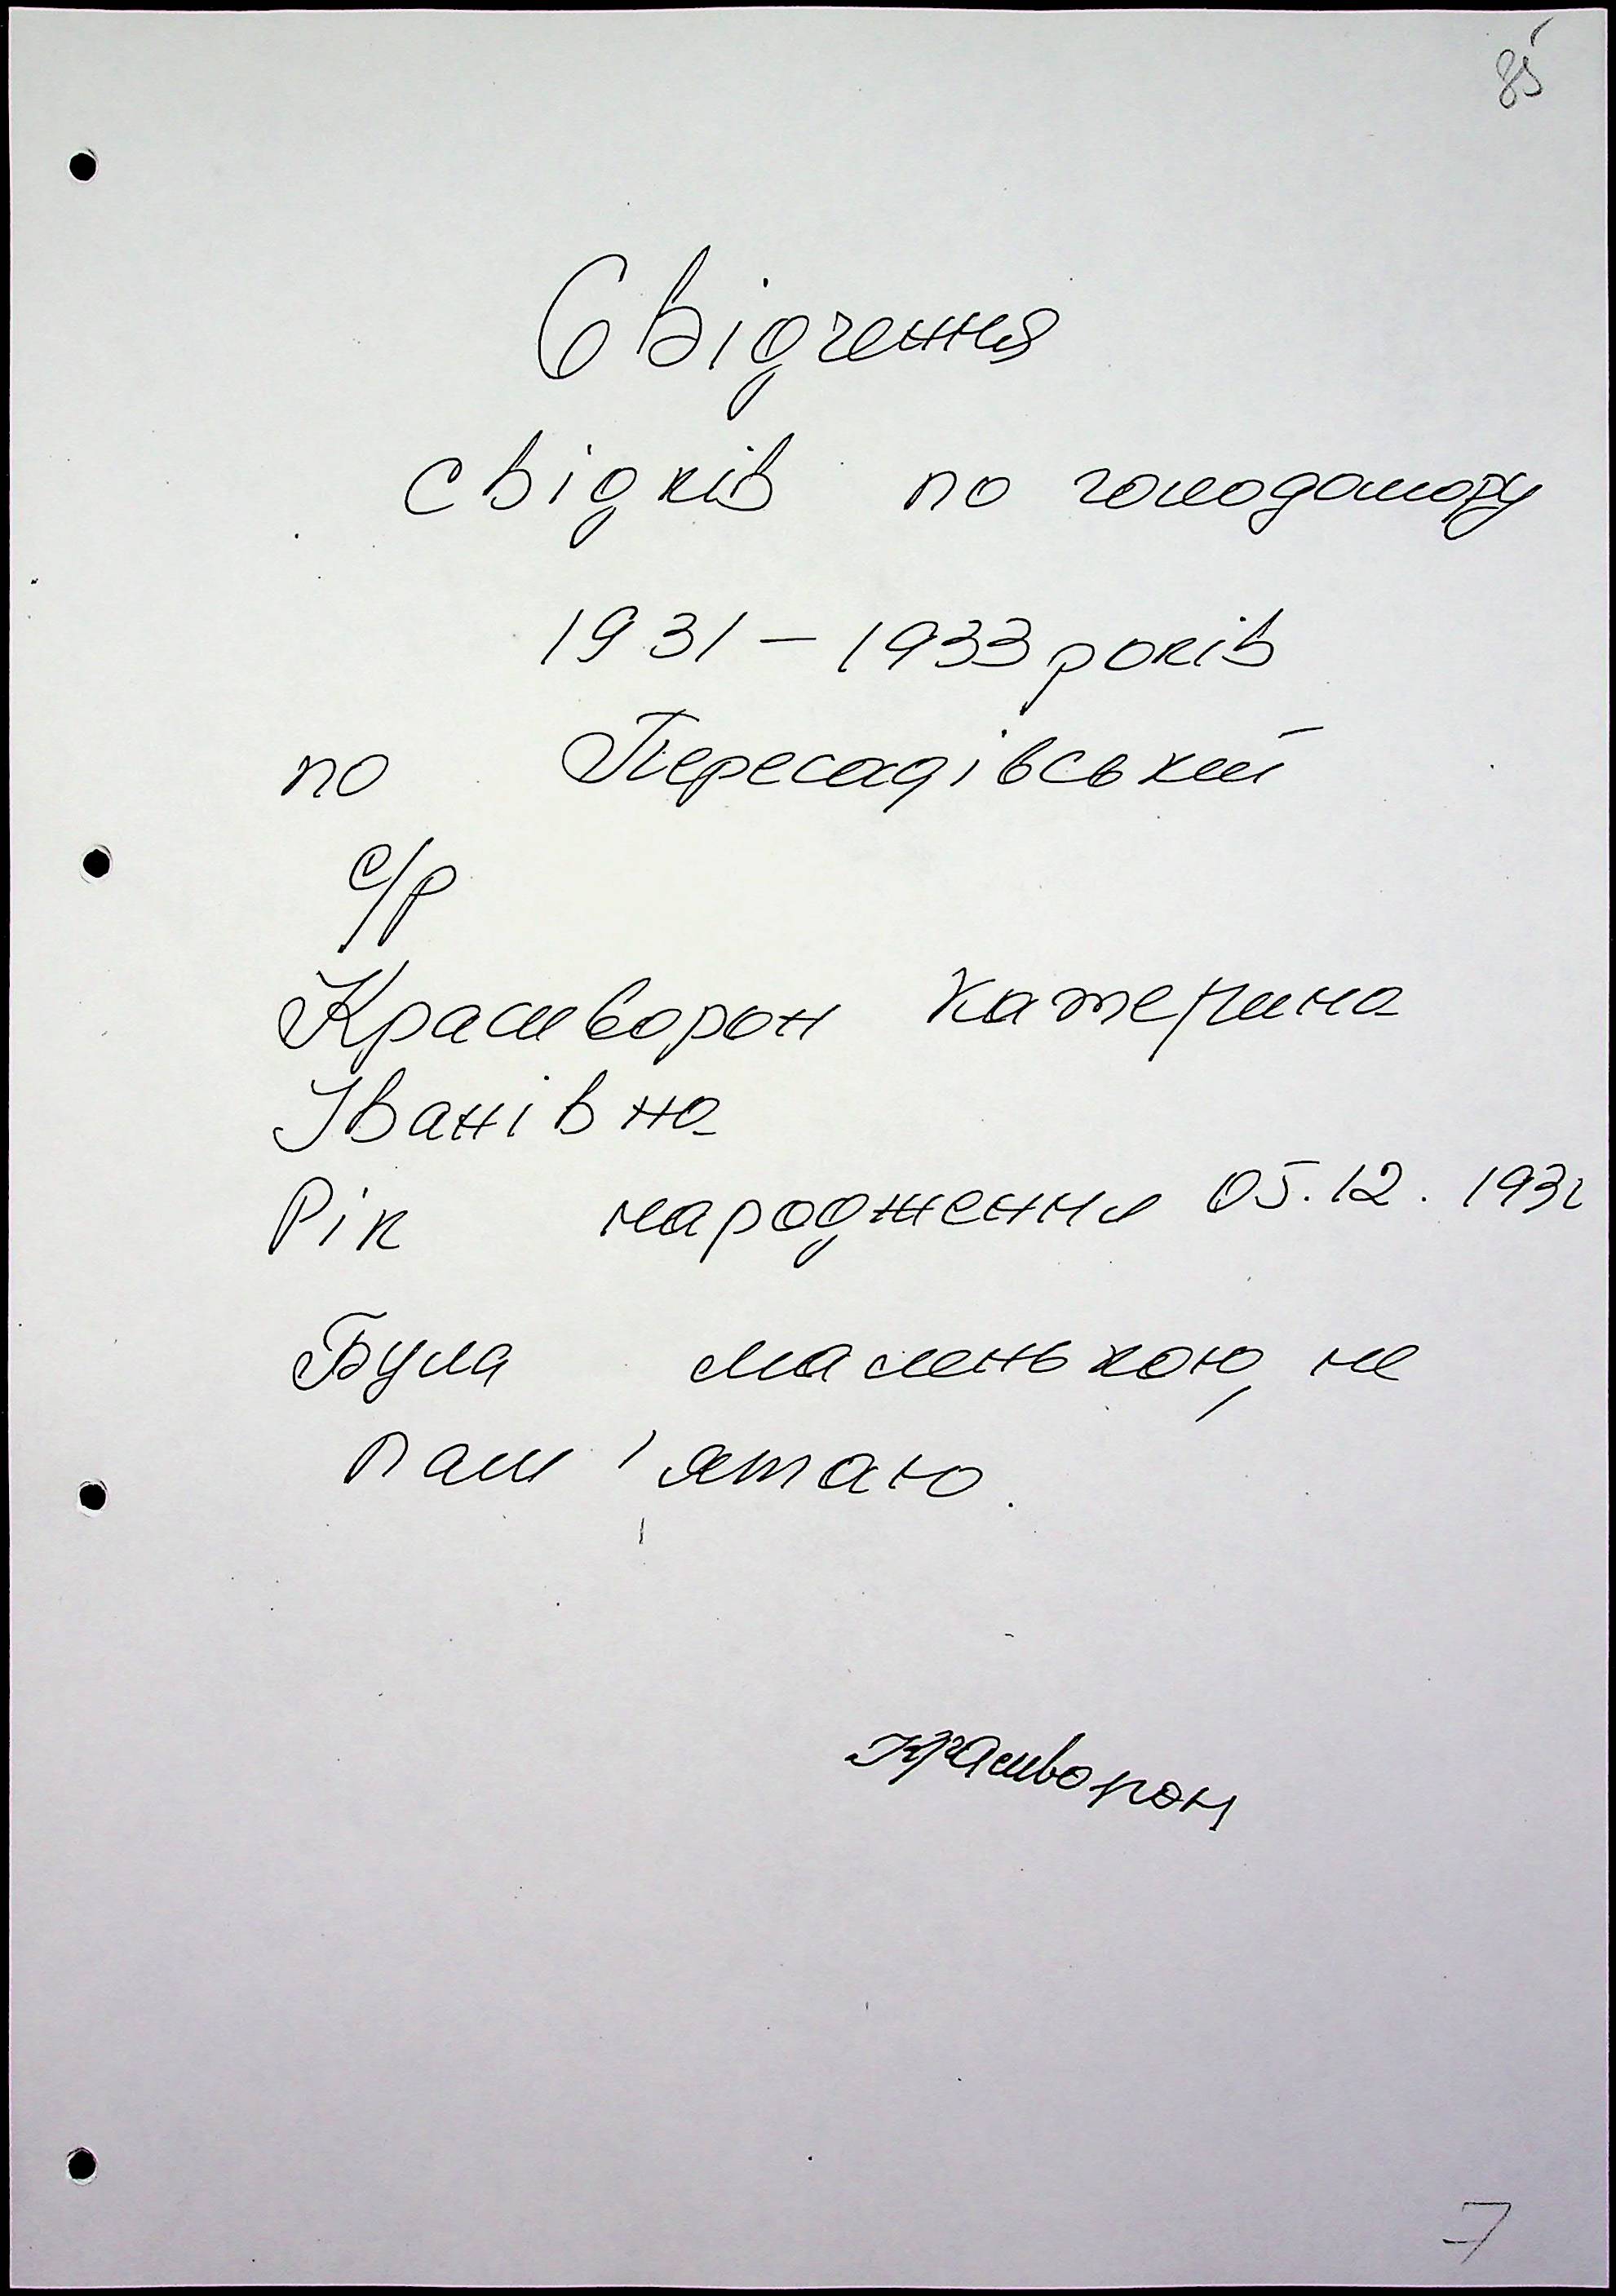 85
Свідчення
свідків по голодомору
1931 – 1933 років
по Пересадівській
с/р
Краснворон Катерина
Іванівна
Рік народження 05.12.193
Була маленькою, не
пам'ятаю.
7